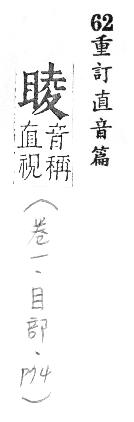 62重訂直音篇
睖
音稱
直視
（卷一、目部、